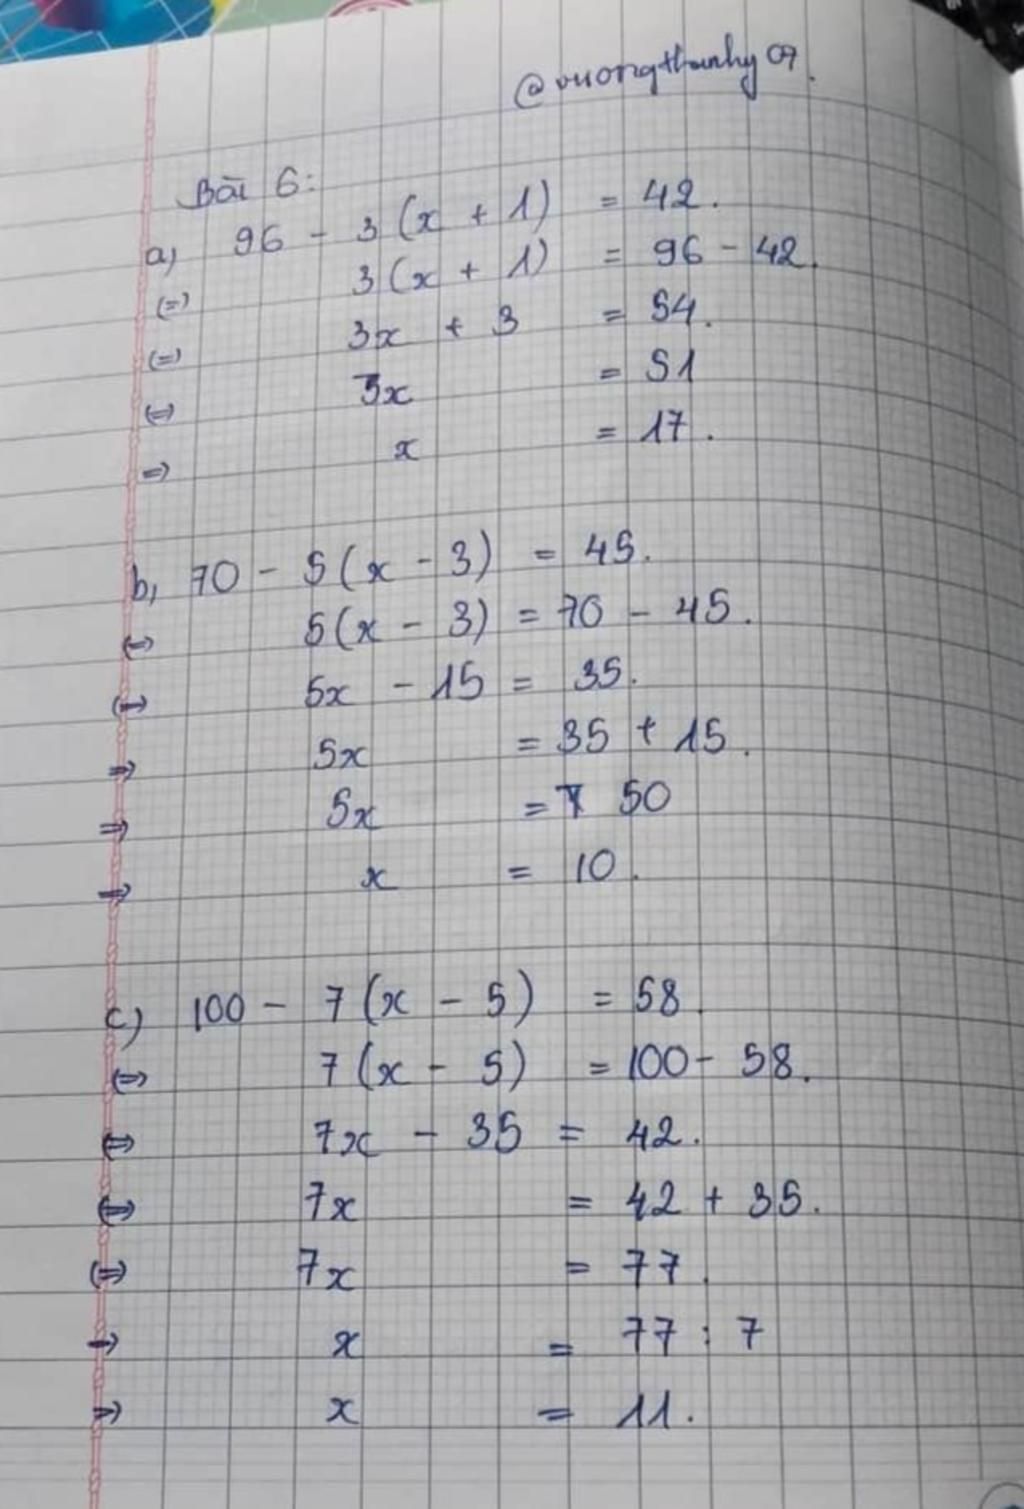 @vuongthanhy 07.
Bài 6:
a, 96 - 3 (x + 1) = 42.
(=) 3 (x + 1) = 96 - 42.
(=) 3x + 3 = 54.
(=) 3x = 51
=) x = 17.
b, 70 - 5 (x - 3) = 45.
(=) 5 (x - 3) = 70 - 45.
(=) 5x - 15 = 35.
=) 5x = 35 + 15.
=) 5x = 50
=) x = 10.
c) 100 - 7 (x - 5) = 58.
(=) 7 (x - 5) = 100 - 58.
(=) 7x - 35 = 42.
(=) 7x = 42 + 35.
(=) 7x = 77.
=) x = 77 : 7
=) x = 11.